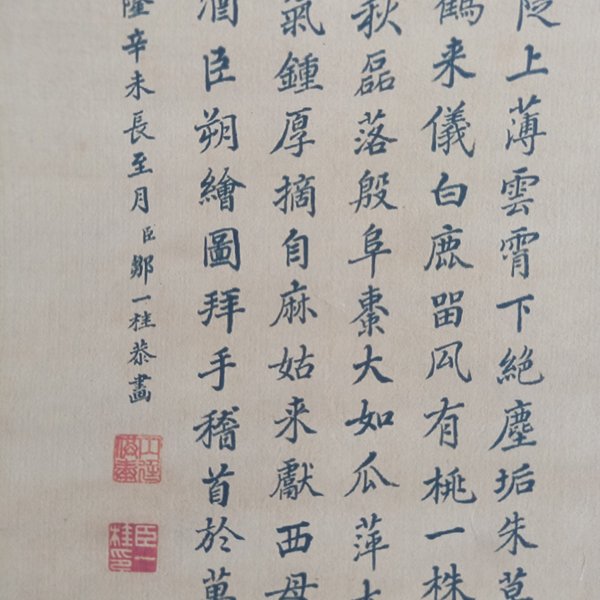 上薄雲霄下絶塵垢朱草
鶴来儀白鹿畱風有桃一株
秋磊落殷阜棗大如瓜萍大
氣鍾厚摘自麻姑来獻西母
酒臣朔繪圖拜手稽首於萬
隆辛未長至月臣鄒一桂恭畫
臣一桂印